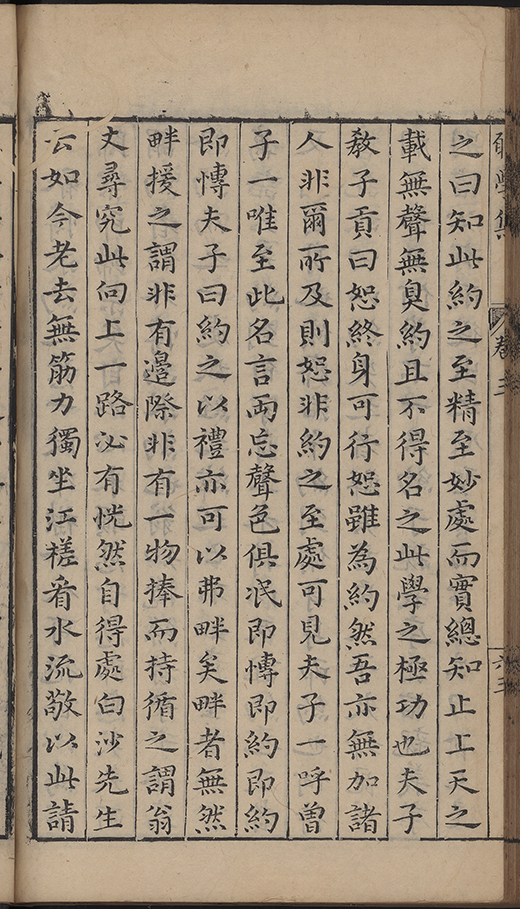 願學集
卷三
六三
之曰知此約之至精至妙處而實總知止上天之
載無聲無臭約且不得名之此學之極功也夫子
教子貢曰恕終身可行恕雖為約然吾亦無加諸
人非爾所及則恕非約之至處可見夫子一呼曾
子一唯至此名言兩忘聲色俱泯即愽即約即約
即愽夫子曰約之以禮亦可以弗畔矣畔者無然
畔援之謂非有邊際非有一物捧而持循之謂翁
丈尋究此向上一路必有恍然自得處白沙先生
云如今老去無筋力獨坐江槎看水流敬以此請